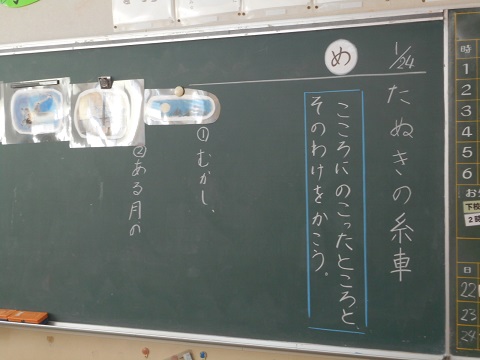 1/24
たぬきの糸車
め
こころにのこったところと、
そのわけをかこう。
①むかし、
②ある月の
時
1
2
3
4
5
6
下校
日
22
23
24